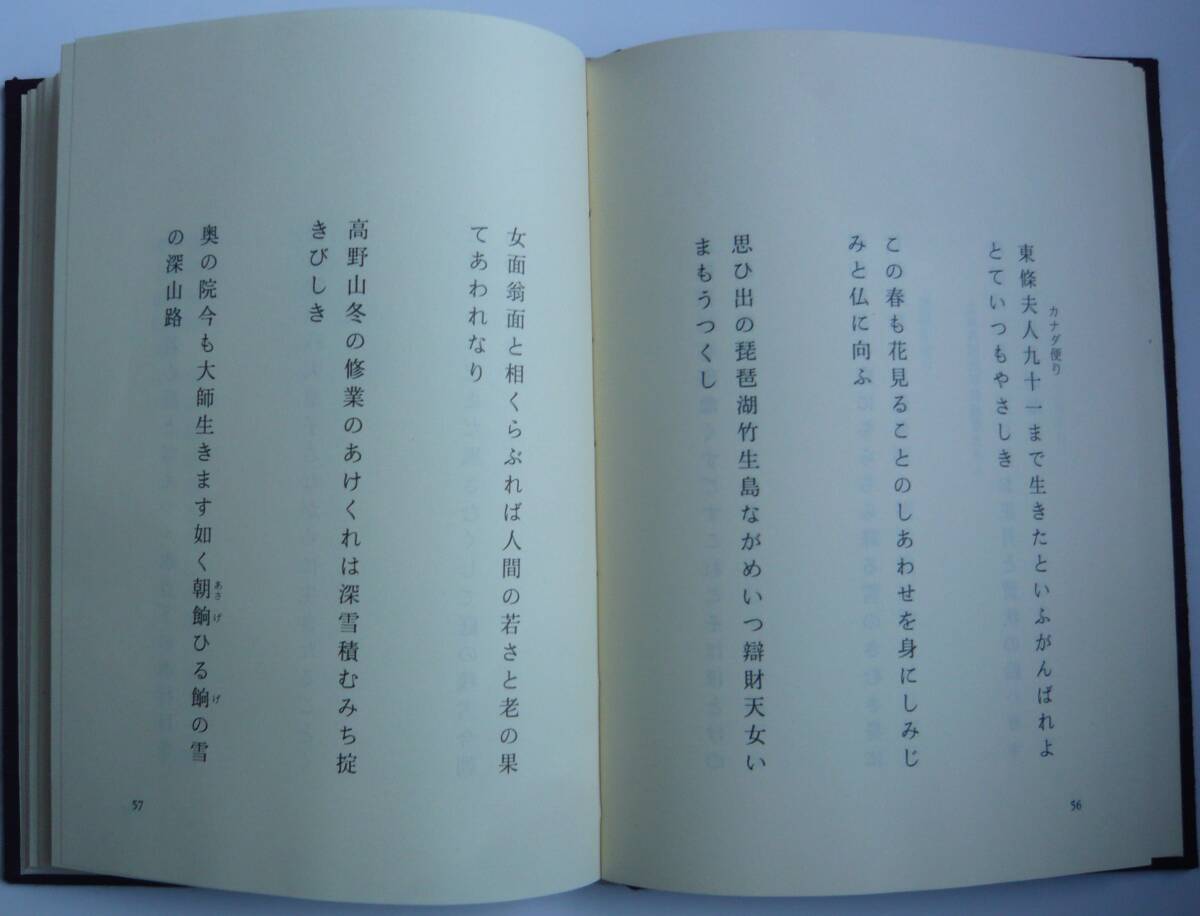 カナダ便り
東條夫人九十一まで生きたといふがんばれよ
とていつもやさしき
この春も花見ることのしあわせを身にしみじ
みと仏に向ふ
思ひ出の琵琶湖竹生島ながめいつ辯財天女い
まもうつくし
56
女面翁面と相くらぶれば人間の若さと老の果
てあわれなり
高野山冬の修業のあけくれは深雪積むみち掟
きびしき
奥の院今も大師生きます如く朝餉ひる餉の雪
あさげ げ
の深山路
57